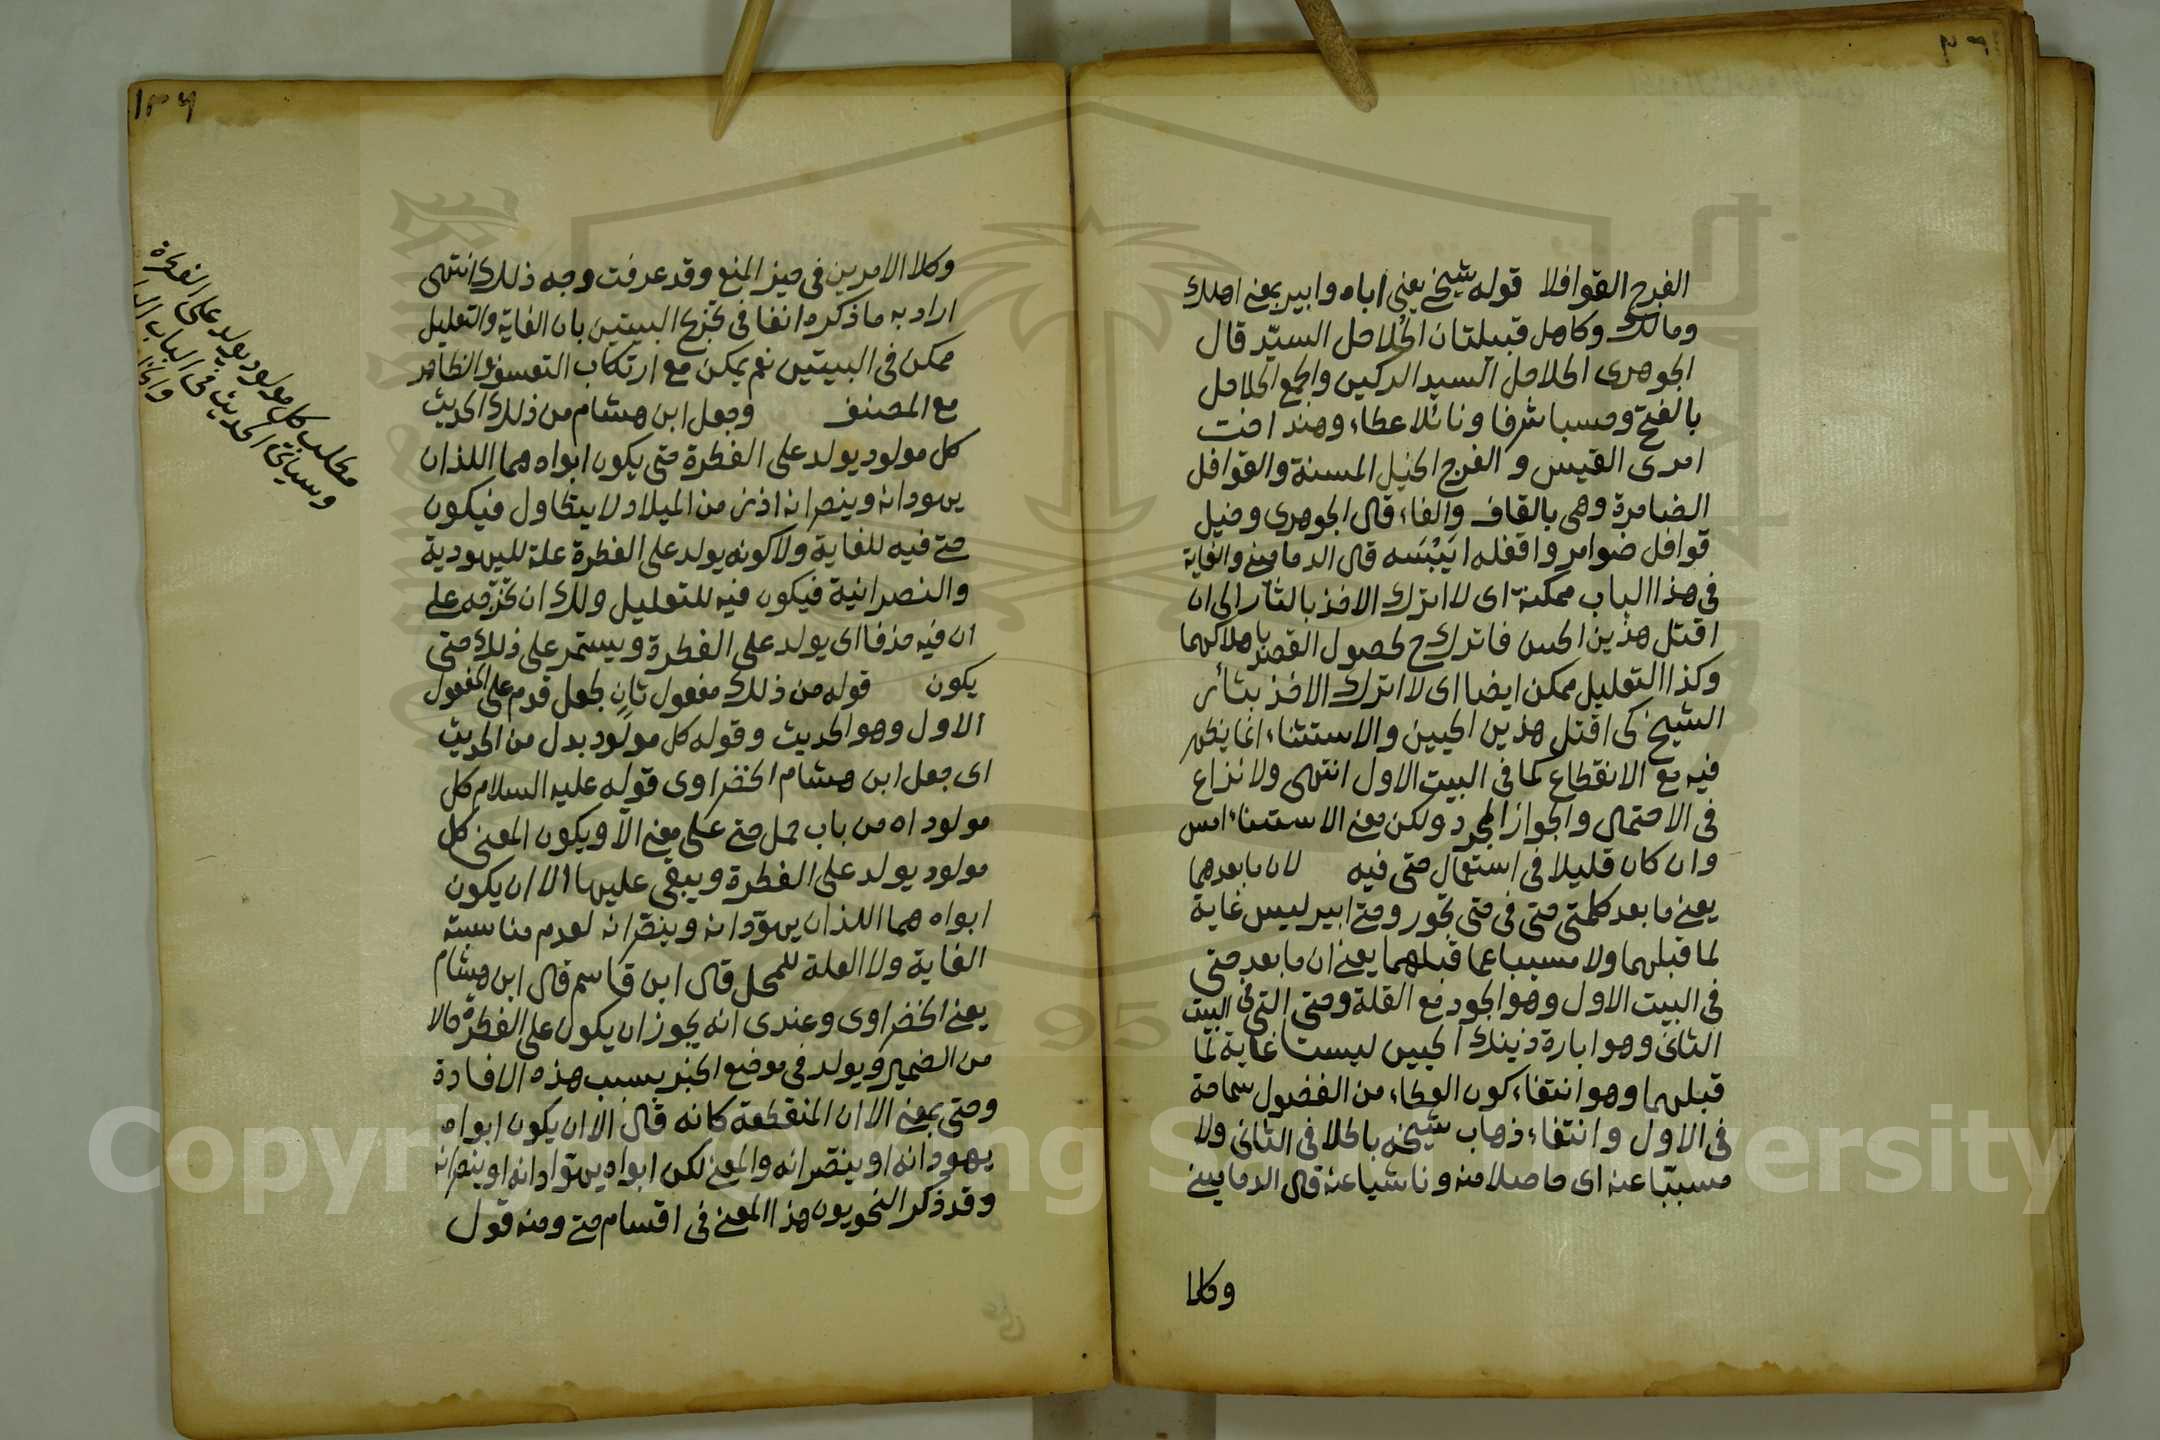 القرح القوافلا قوله شيخي يعني اباه وابير بمعنى اهلك
ومالك وكاهل قبيلتان الحلاحل السيّد قال
الجوهرى الحلاحل السيد الركين والجمع الحلاحل
بالفتح وحسبا شرفا ونائلا عطاء وهند اخت
امرى القيس والقرح الخيل المسنة والقوافل
الضامرة وهى بالقاف والفاء قال الجوهرى وخيل
قوافل ضوامر واقفله ايَبْسَه قال الدمامينى والغاية
فى هذا الباب ممكنة اى لا اترك الاخذ بالثار الى ان
اقتل هذين الحيين فاترك ح لحصول القصد باهلاكهما
وكذا التعليل ممكن ايضا اى لا اترك الاخذ بثأر
الشيخ كى اقتل هذين الحيين والاستثناء انما يظهر
فيه مع الانقطاع كما فى البيت الاول انتهى ولا نزاع
فى الاحتمال والجواز المجرد ولكن معنى الاستثناء امس
وان كان قليلا فى استعمال حتى فيه لان ما بعدهما
يعنى ما بعد كلمتى حتى فى حتى تجود وحتى ابير ليس غاية
لما قبلهما ولا مسببا عما قبلهما يعنى ان ما بعد حتى
فى البيت الاول وهو الجود مع القلة وحتى التى فى البيت
الثانى وهو ابارة ذينك الحيين ليست غاية لما
قبلهما وهو انتفاء كون العطاء من الفضول سماحة
فى الاول وانتفاء ذهاب شيخه باطلا فى الثانى ولا
مسببّا عنه اى حاصلا منه وناشيا عنه قال الدمامينى
وكلا
١٣٦
وكلا الامرين فى حيز المنع وقد عرفت وجه ذلك انتهى
اراد به ما ذكره انفا فى تخريج البيتين بان الغاية والتعليل
ممكن فى البيتين نعم يمكن مع ارتكاب التعسف والظاهر
مع المصنف وجعل ابن هشام من ذلك الحديث
كل مولود يولد على الفطرة حتى يكون ابواه هما اللذان
يهودانه وينصرانه اذ زمن الميلاد لا يتطاول فيكون
حتى فيه للغاية ولا كونه يولد على الفطرة علة لليهودية
والنصرانية فيكون فيه للتعليل ولك ان تخرّجه على
ان فيه حذفا اى يولد على الفطرة ويستمر على ذلك حتى
يكون قوله من ذلك مفعول ثانٍ لجعل قدم على المفعول
الاول وهو الحديث وقوله كل مولود بدل من الحديث
اى جعل ابن هشام الخضراوى قوله عليه السلام كل
مولود اه من باب حمل حتى على معنى الاّ ويكون المعنى كل
مولود يولد على الفطرة ويبقى عليها الا ان يكون
ابواه هما اللذان يهوّدانه وينصّرانه لعدم مناسبة
الغاية ولا العلة للمحل قال ابن قاسم قال ابن هشام
يعنى الخضراوى وعندى انه يجوز ان يكون على الفطرة حالا
من الضمير ويولد فى موضع الخبر بسبب هذه الافادة
وحتى بمعنى الا ان المنقطعة كانه قال الا ان يكون ابواه
يهودانه او ينصّرانه والمعنى لكن ابواه يهودانه او ينصرانه
وقد ذكر النحويون هذا المعنى فى اقسام حتى ومنه قول
مطلب كل مولود يولد على الفطرة
وسياتى الحديث فى الباب